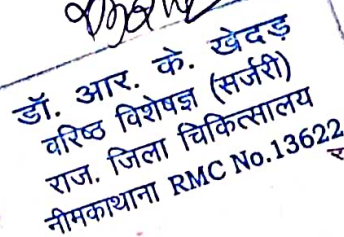 डॉ. आर. के. खेदड़
वरिष्ठ विशेषज्ञ (सर्जरी)
राज. जिला चिकित्सालय
नीमकाथाना RMC No.13622